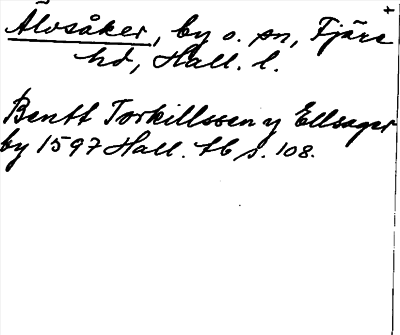 Älvsåker, by o. sn, Fjäre
hd, Hall. l.
Bentt Torkillssen y Ellsager
by 1597 Hall. tb s. 108.